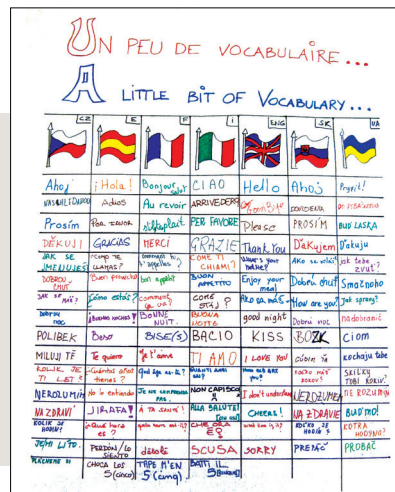 UN PEU DE VOCABULAIRE...
A LITTLE BIT OF VOCABULARY...
CZ E F I ENG SK UA
Ahoj ¡Hola! Bonjour, salut CIAO Hello Ahoj Pryvit!
NASHLEDANOU Adios Au revoir ARRIVEDERCI DOVIDENIA
Prosím POR FAVOR PER FAVORE Please PROSÍM BUD LASKA
DĚKUJI GRACIAS MERCI GRAZIE Thank You Ďakujem D'akuju
JAK SE JMENUJEŠ ¿COMO TE LLAMAS? COME TI CHIAMI? Ako se voláš jak tebe zvut'?
DOBROU CHUT Buen provecho bon appetit BUON APPETITO Enjoy your meal Dobrú chuť Smatznoho
JAK SE MÁŠ? ¿Cómo estás? comment ça va? COME STAI? Ako sa máš How are you? Jak spravy?
DOBROU NOC ¡BUENAS NOCHES! BONNE NUIT. BUONA NOTTE good night Dobrú noc nadobranič
POLIBEK Beso BISE(S) BACIO KISS BOZK Ciom
MILUJI TĚ Te quiero je t'aime TI AMO I LOVE YOU ĽÚBIM ŤA kochaju tebe
KOLIK JE TI LET? ¿Cuántos años tienes? Quel âge as-tu? HOW OLD ARE YOU? KOĽKO MÁŠ ROKOV? SKILKY TOBI ROKIV?
NEROZUMÍM No lo entiendo JE NE COMPRENDS PAS. NON CAPISCO I don't understand NEROZUMIEM NE ROZUMIN
NA ZDRAVÍ JIRAFA! À TA SANTÉ! ALLA SALUTE! CHEERS! NA ZDRAVIE BUD'MO!
KOLIK JE HODIN? ¿Qué hora es? CHE ORA È? KOĽKO JE HODÍN? KOTRA HODYNA?
JE MI LÍTO. PERDÓN/LO SIENTO désolé SCUSA SORRY PREPÁČ PROBAČ
CHOCA LOS 5 (cinco) TAPE M'EN 5 (cinq) BATTI IL 5